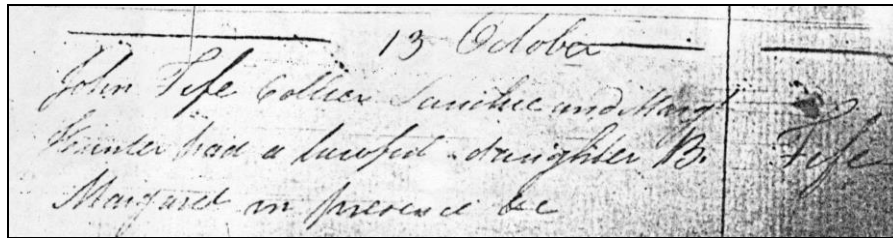 13 October
John Fife Collier Sauchie and Margt
Hunter had a lawful daughter B.
Fife
Margaret in presence &c